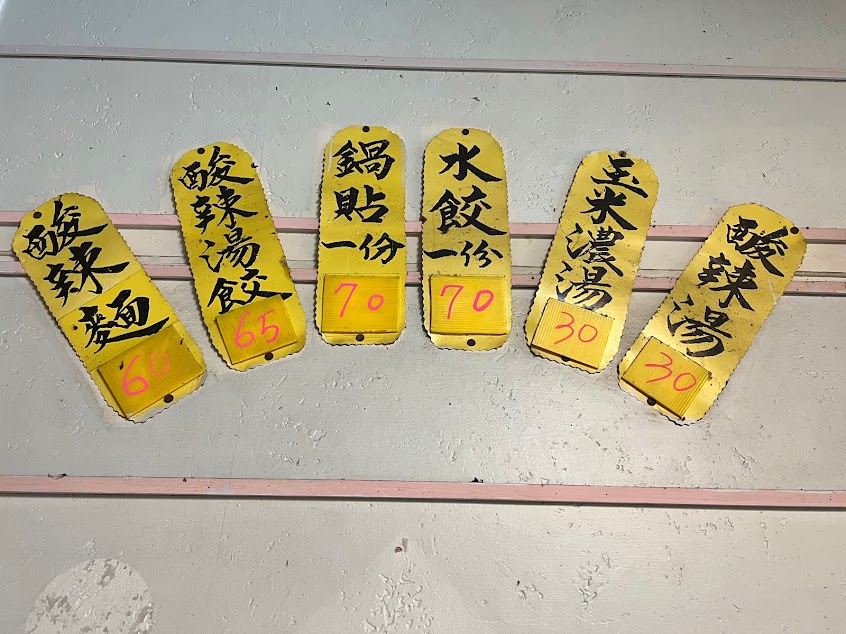 酸辣麵
60
酸辣湯餃
65
鍋貼
一份
70
水餃
一份
70
玉米濃湯
30
酸辣湯
30